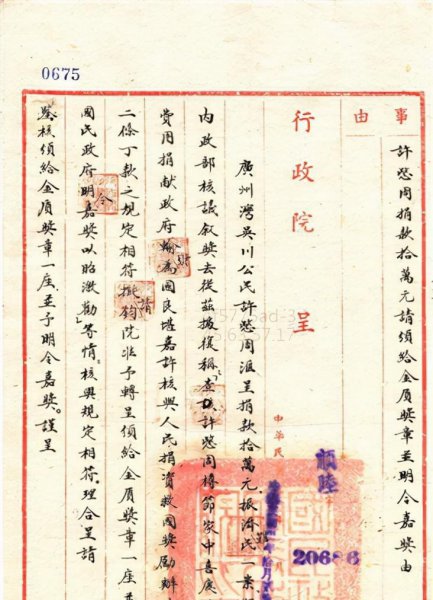 0675
事由
許愛周捐款拾萬元請頒給金質獎章並明令嘉獎由
行政院 呈
廣州灣吳川公民許愛周滙呈捐款拾萬元振濟民一案
內政部核議敘獎去後茲據復稱查該許愛周樽節家中喜慶
費用捐獻政府輸為國民堪嘉許核與人民捐資救國獎勵辦
二條丁款之規定相符擬請鈞院准予轉呈頒給金質獎章一座並
國民政府明令嘉獎以昭激勸等情核與規定相符理合呈請
鑒核頒給金質獎章一座並予明令嘉獎。謹呈
中華民
20686